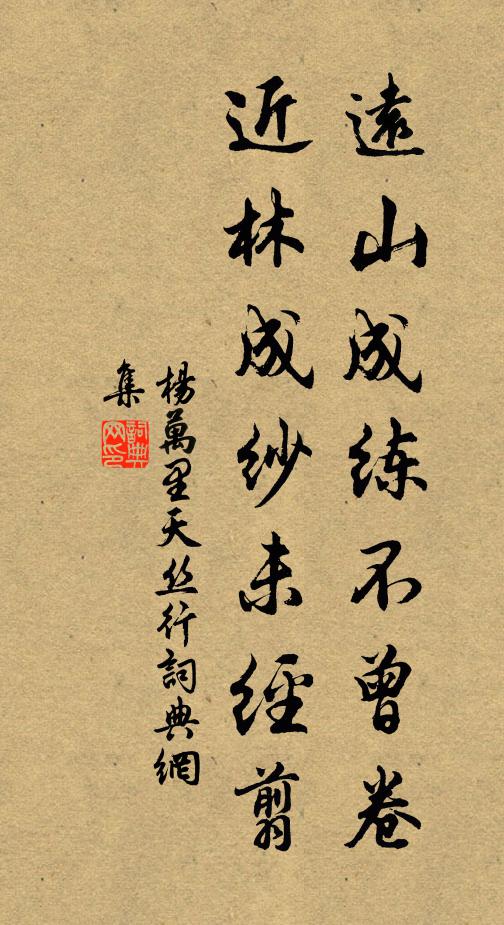 遠山成练不曾卷
近林成纱未經翦
楊萬里天丝行詞典網
集
詞典
网印